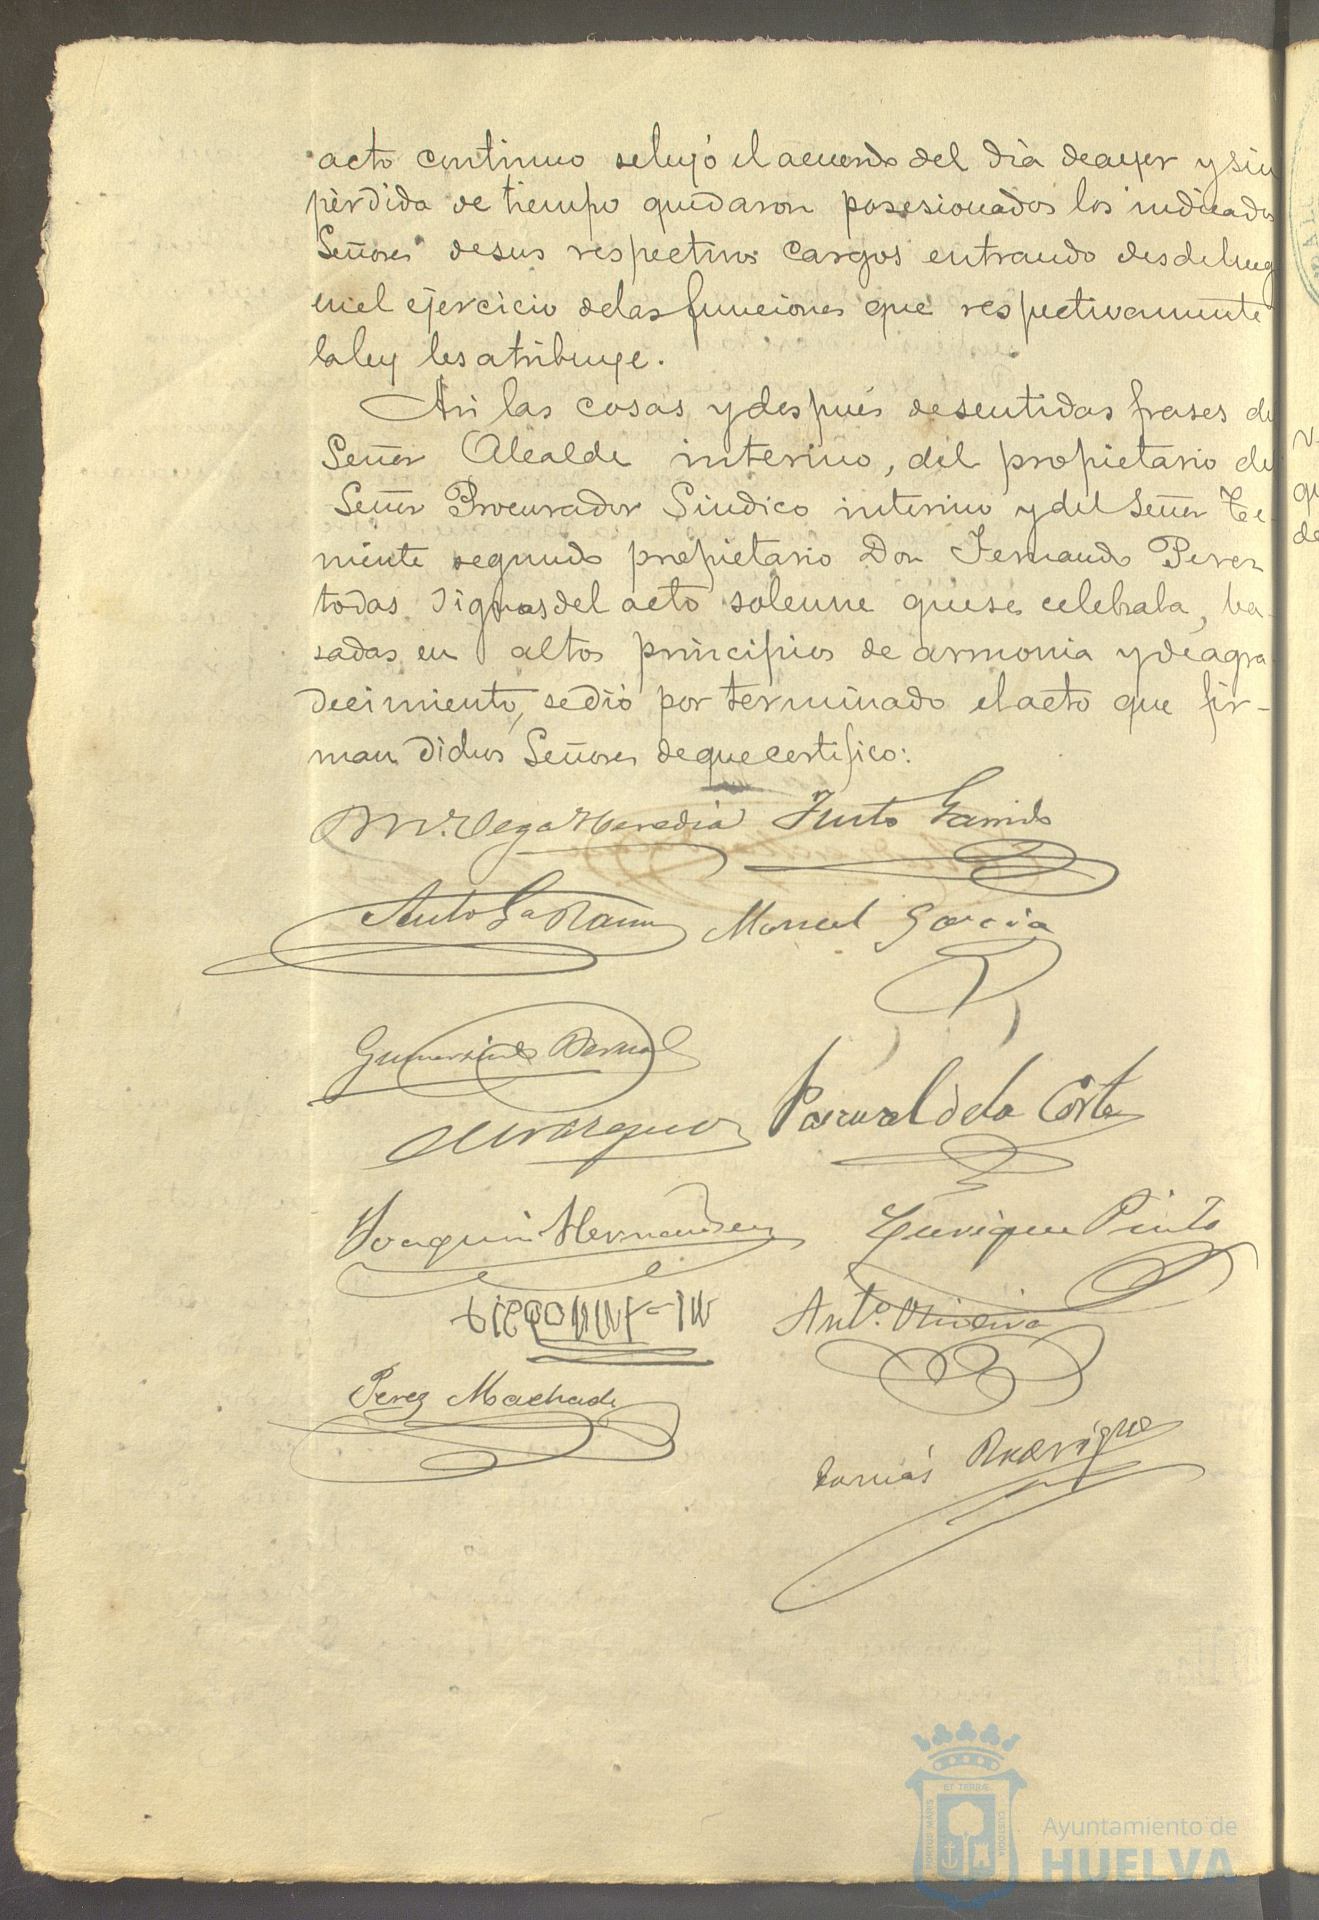 acto continuo se leyó el acuerdo del día de ayer y sin
pérdida de tiempo quedaron posesionados los indicados
Señores de sus respectivos cargos entrando desde lueg
en el ejercicio de las funciones que respectivamente
la ley les atribuye.
Asi las cosas y después de sentidas frases del
Señor Alcalde interino, del propietario del
Señor Procurador Sindico interino y del Señor Te-
niente segundo propietario Don Fernando Perez
todas dignas del acto solemne que se celebraba, ba-
sadas en altos principios de armonia y de agra-
decimiento, se dió por terminado el acto que fir-
man dichos Señores de que certifico:
M. Vega Heredia Justo Garrido
Anto Ga Ramos Manuel Garcia
Gumersindo Bernal
Vazquez Pascual de la Corte
Joaquin Hernandez Enrique Pinto
Anto. Oliveira
Perez Machado
Tomás Rodriguez
ET TERRÆ
PORTUS MARIS
CUSTODIA
Ayuntamiento de
HUELVA